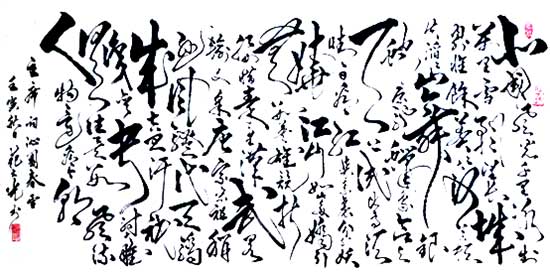 北国风光千里冰封
万里雪飘望长城
内外惟余莽莽大河上下顿
失滔滔山舞银
蛇原驰蜡象欲与
天公试比高须
晴日看红装素裹分外妖
娆江山如此多娇引
无数英雄竞折
腰惜秦皇汉武略
输文采唐宗宋祖稍
逊风骚一代天骄
成吉思汗只识
弯弓射大雕
俱往矣数风流
人物还看今朝
主席词沁园春雪
壬寅秋日